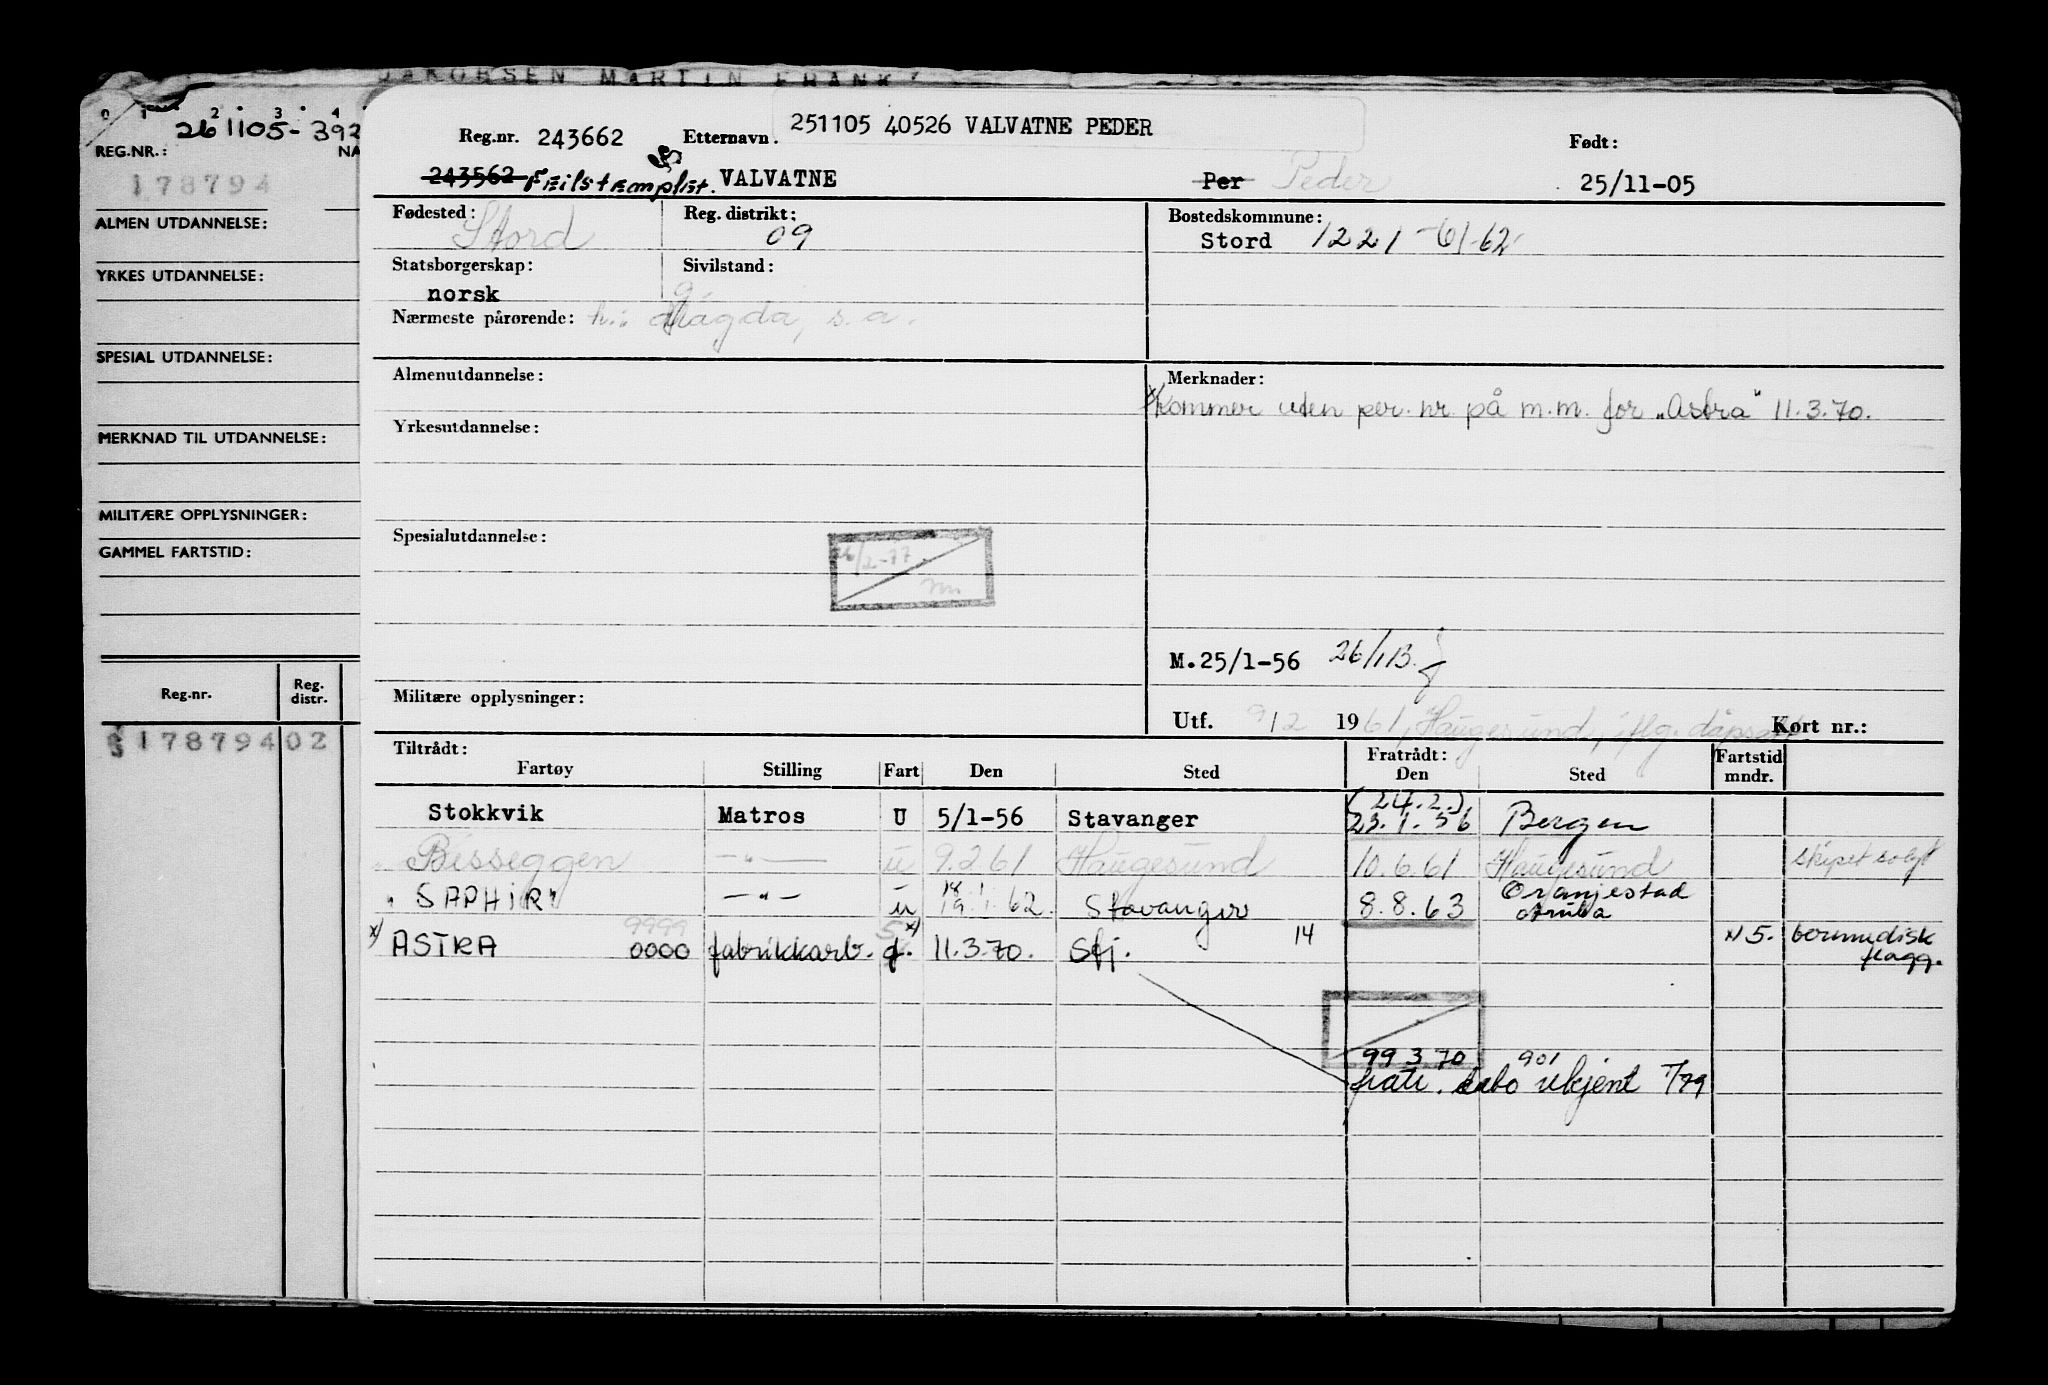 JAKOBSEN MARTIN FRANK
0 1 2 3 4
261105-392
REG.NR.: NA
178794
ALMEN UTDANNELSE:
YRKES UTDANNELSE:
SPESIAL UTDANNELSE:
MERKNAD TIL UTDANNELSE:
MILITÆRE OPPLYSNINGER:
GAMMEL FARTSTID:
Reg.nr. Reg. distr.
178794 02
251105 40526 VALVATNE PEDER
Reg.nr. 243662 Etternavn. Født:
243562 FEilstEmplet. VALVATNE Per Peder 25/11-05
Fødested: Stord Reg. distrikt: 09 Bostedskommune:
Stord 1221 -61-62
Statsborgerskap: Sivilstand:
norsk g
Nærmeste pårørende: h.: Magda, s.a.
Almenutdannelse: Merknader:
x) Kommer uten per. nr på m.m. for "Astra" 11.3.70.
Yrkesutdannelse:
Spesialutdannelse:
26/2-77
M.25/1-56 26/1 B.
Militære opplysninger:
Utf. 9/2 1961, Haugesund, iflg. dåpsatt Kort nr.:
Tiltrådt: Fratrådt: Fartstid
Fartøy Stilling Fart Den Sted Den Sted mndr.
(24.2.)
Stokkvik Matros U 5/1-56 Stavanger 23.1.56 Bergen
" Besseggen —"— u 9.2.61 Haugesund 10.6.61 Haugesund skipet solgt
" SAPHIR" —"— u 19.1.62. Stavanger 8.8.63 Oranjestad Aruba
x) ASTRA 9999 0000 fabrikkarb. f. x) 11.3.70. Stj. 14 N 5. bermudisk flagg.
99 3 70 901
fratr. dato ukjent 7/79